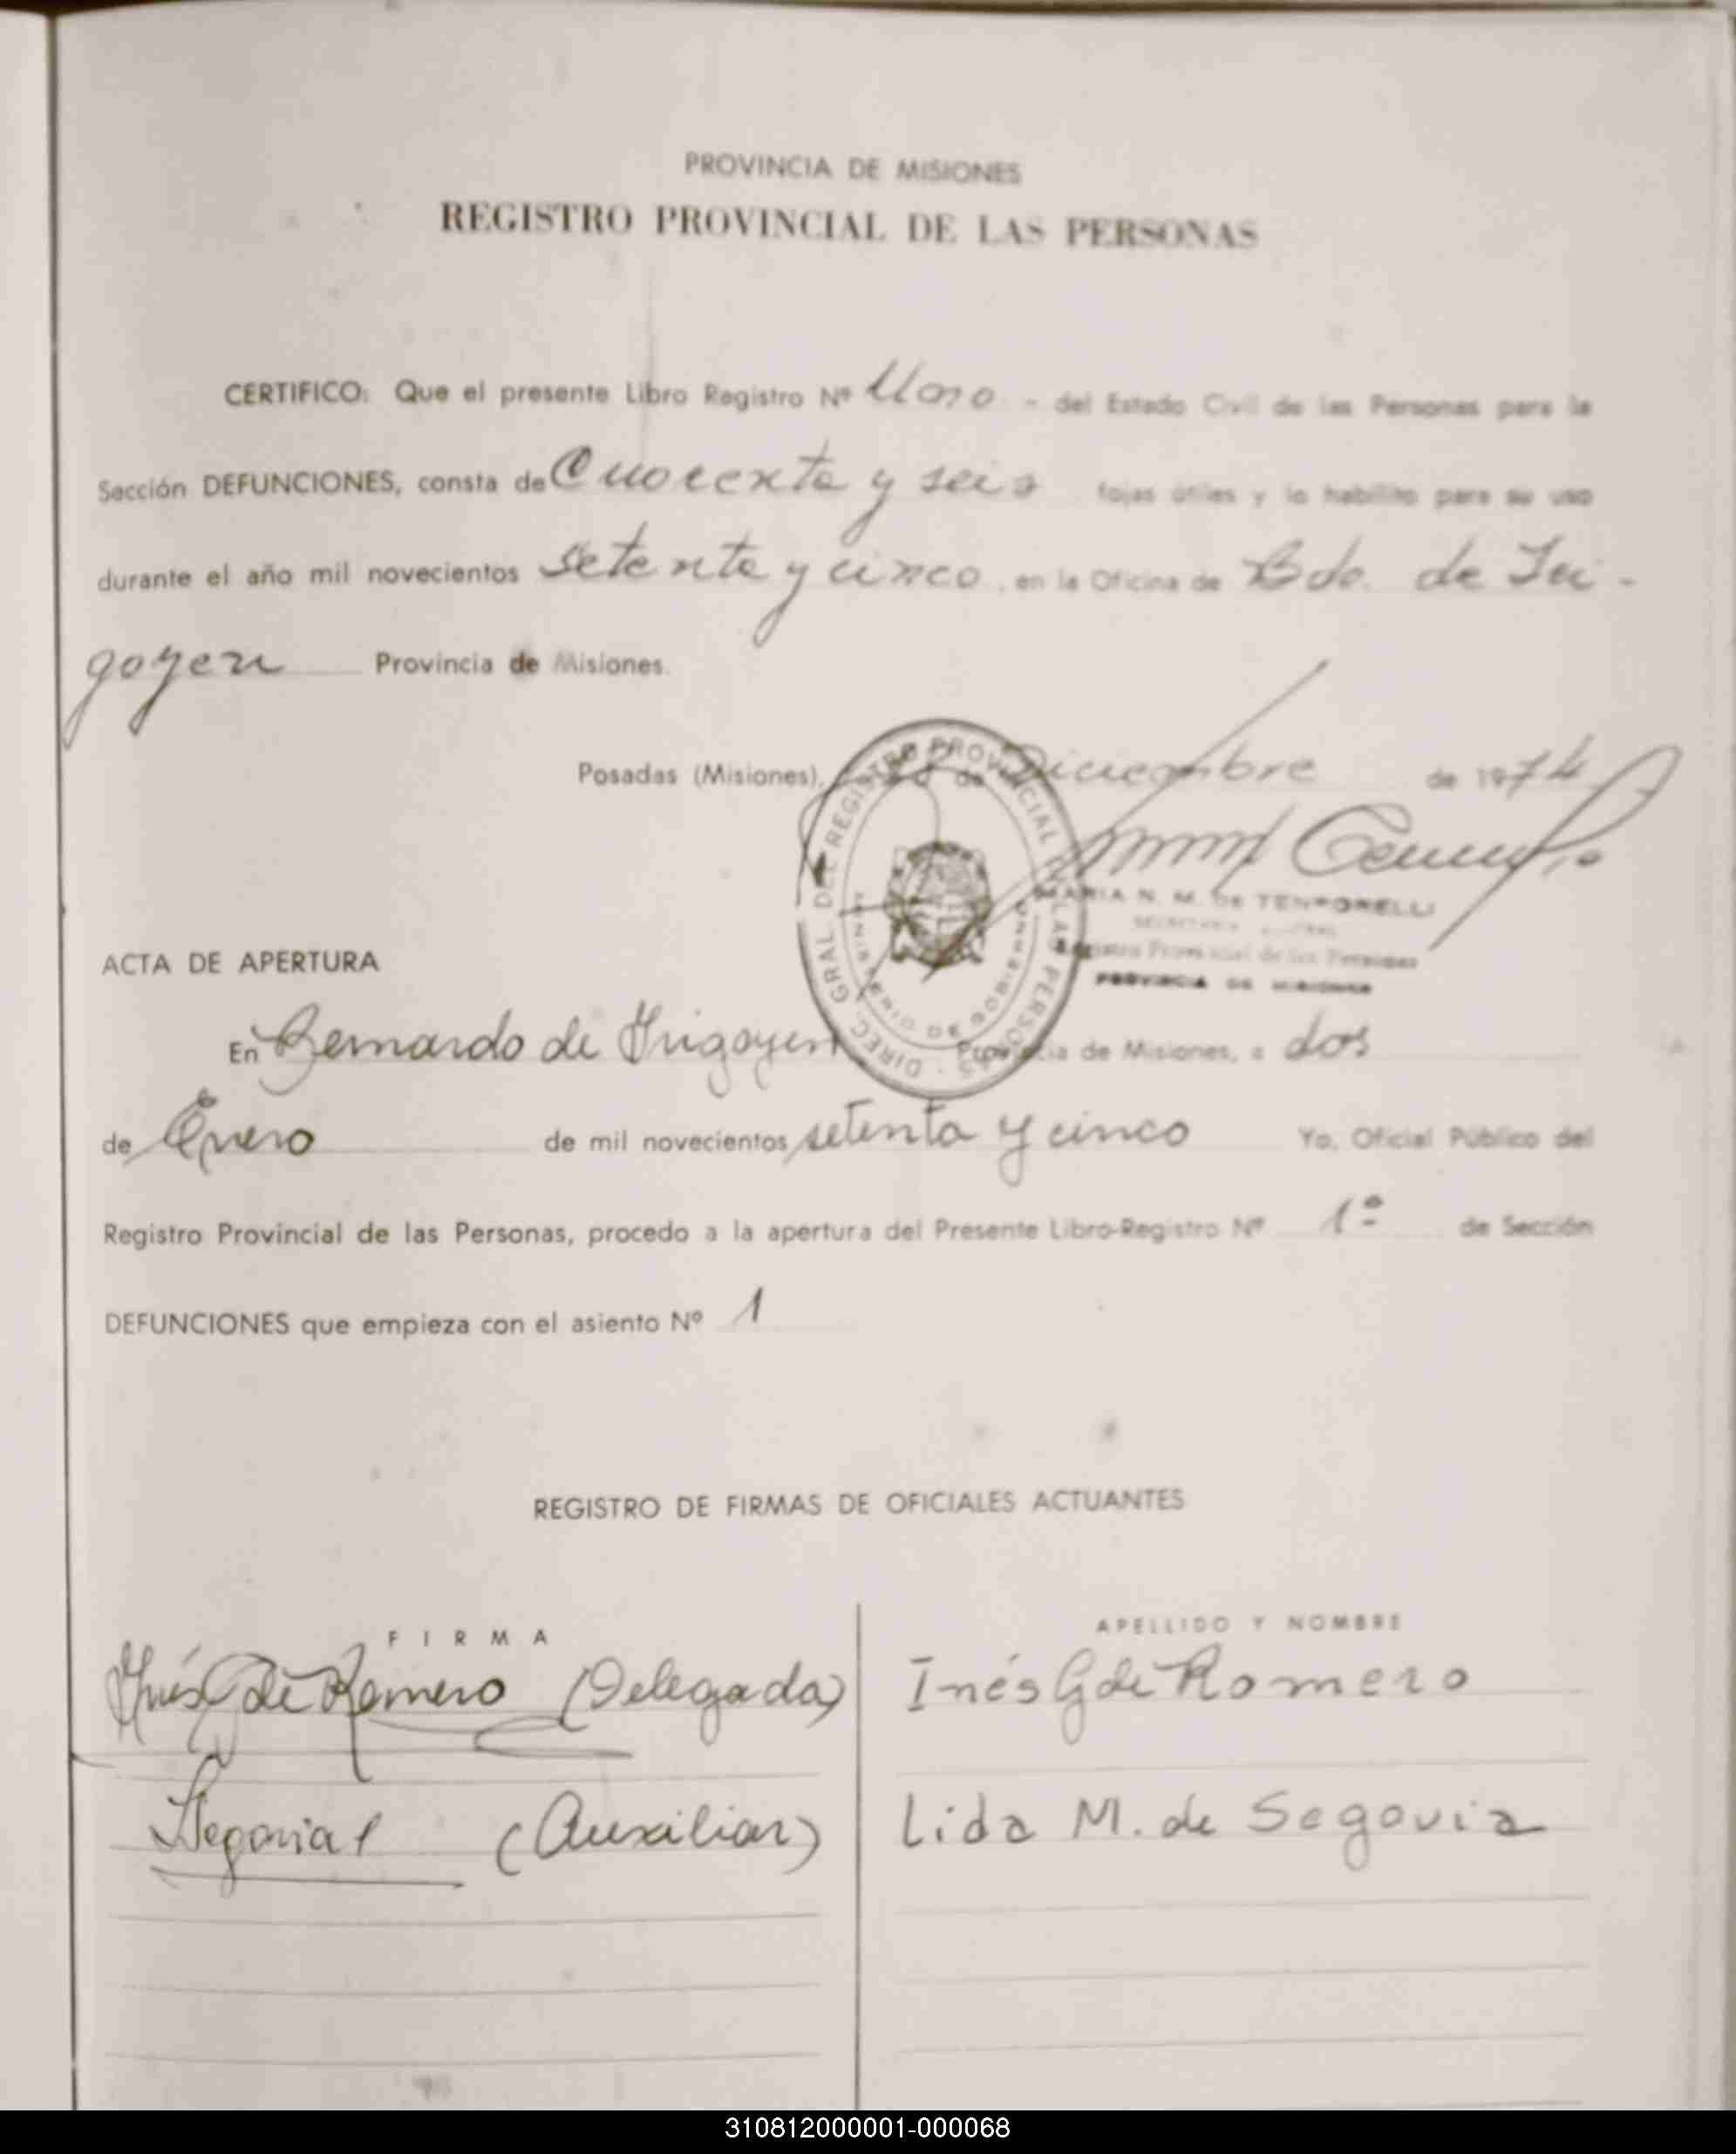 PROVINCIA DE MISIONES
REGISTRO PROVINCIAL DE LAS PERSONAS
CERTIFICO: Que el presente Libro Registro Nº Uno - del Estado Civil de las Personas para la
Sección DEFUNCIONES, consta de Cuarenta y seis fojas útiles y lo habilito para su uso
durante el año mil novecientos setenta y cinco, en la Oficina de Bdo. de Iri-
goyen Provincia de Misiones.
Posadas (Misiones), de Diciembre de 1974
DIREC. GRAL. DEL REGISTRO PROVINCIAL DE LAS PERSONAS
MINISTERIO DE GOBIERNO
MARIA N. M. DE TENTORELLI
Registro Provincial de las Personas
PROVINCIA DE MISIONES
ACTA DE APERTURA
En Bernardo de Irigoyen Provincia de Misiones, a dos
de Enero de mil novecientos setenta y cinco Yo, Oficial Público del
Registro Provincial de las Personas, procedo a la apertura del Presente Libro-Registro Nº 1º de Sección
DEFUNCIONES que empieza con el asiento Nº 1
REGISTRO DE FIRMAS DE OFICIALES ACTUANTES
FIRMA APELLIDO Y NOMBRE
Inés G de Romero (Delegada) Inés G de Romero
Segovia (Auxiliar) Lida M. de Segovia
310812000001-000068